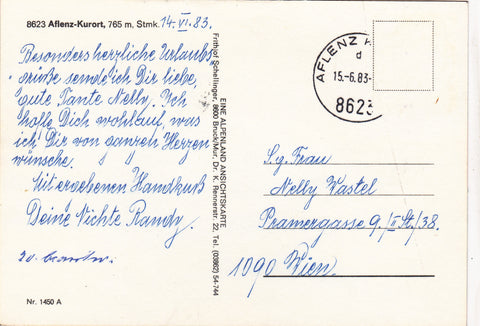 8623 Aflenz-Kurort, 765 m, Stmk. 14. VI. 83.
Besonders herzliche Urlaubs
grüße sende ich Dir liebe,
gute Tante Nelly. Ich
hoffe Dich wohlauf, was
ich Dir von ganzen Herzen
wünsche.
Mit ergebenen Handkuß
Deine Nichte Randy.
Nr. 1450 A
EINE ALPENLAND ANSICHTSKARTE
Frithjof Schellinger, 8600 Bruck/Mur, Dr. K. Rennerstr. 22, Tel. (03862) 54-744
AFLENZ K
d
15.-6.83-
8623
Sg. Frau
Nelly Wastel
Pramergasse 9/II St/38.
1090 Wien.